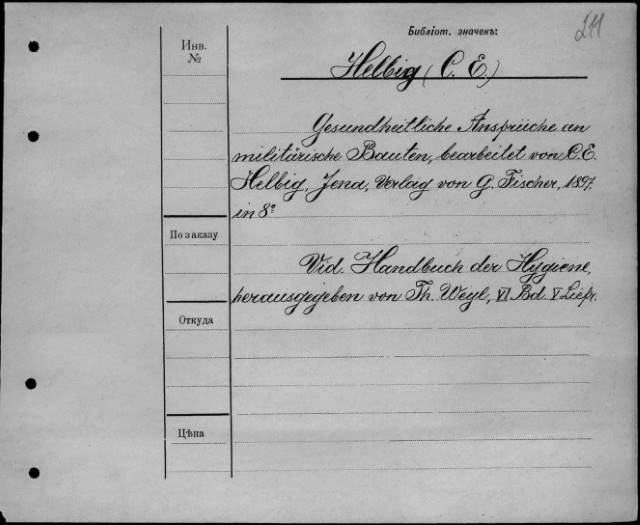 Библіот. значекъ:
211
Инв.
№
Helbig (C. E.)
Gesundheitliche Ansprüche an
militärische Bauten, bearbeitet von C. E.
Helbig, Jena, Verlag von G. Fischer, 1897,
in 8º
По заказу
Vid. Handbuch der Hygiene,
herausgegeben von Th. Weyl, VI Bd. V Liefr.
Откуда
Цѣна